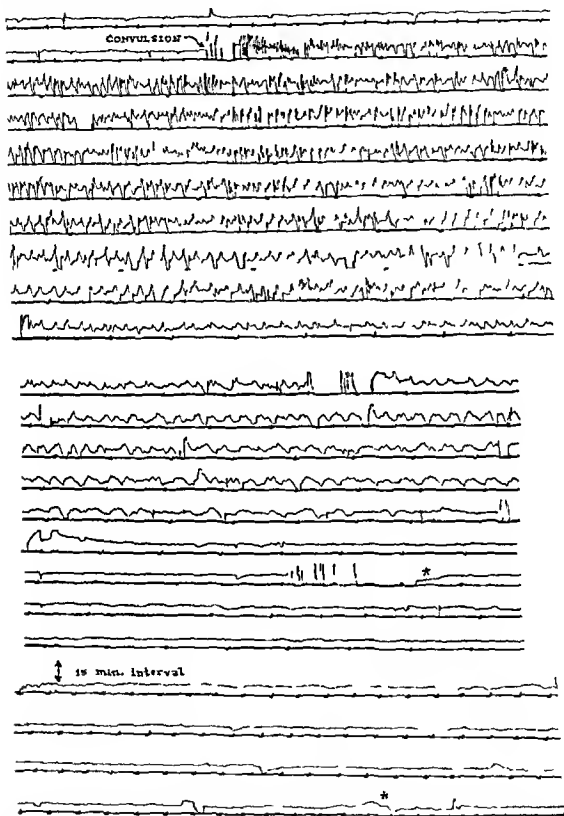 CONVULSION
*
15 min. interval
*